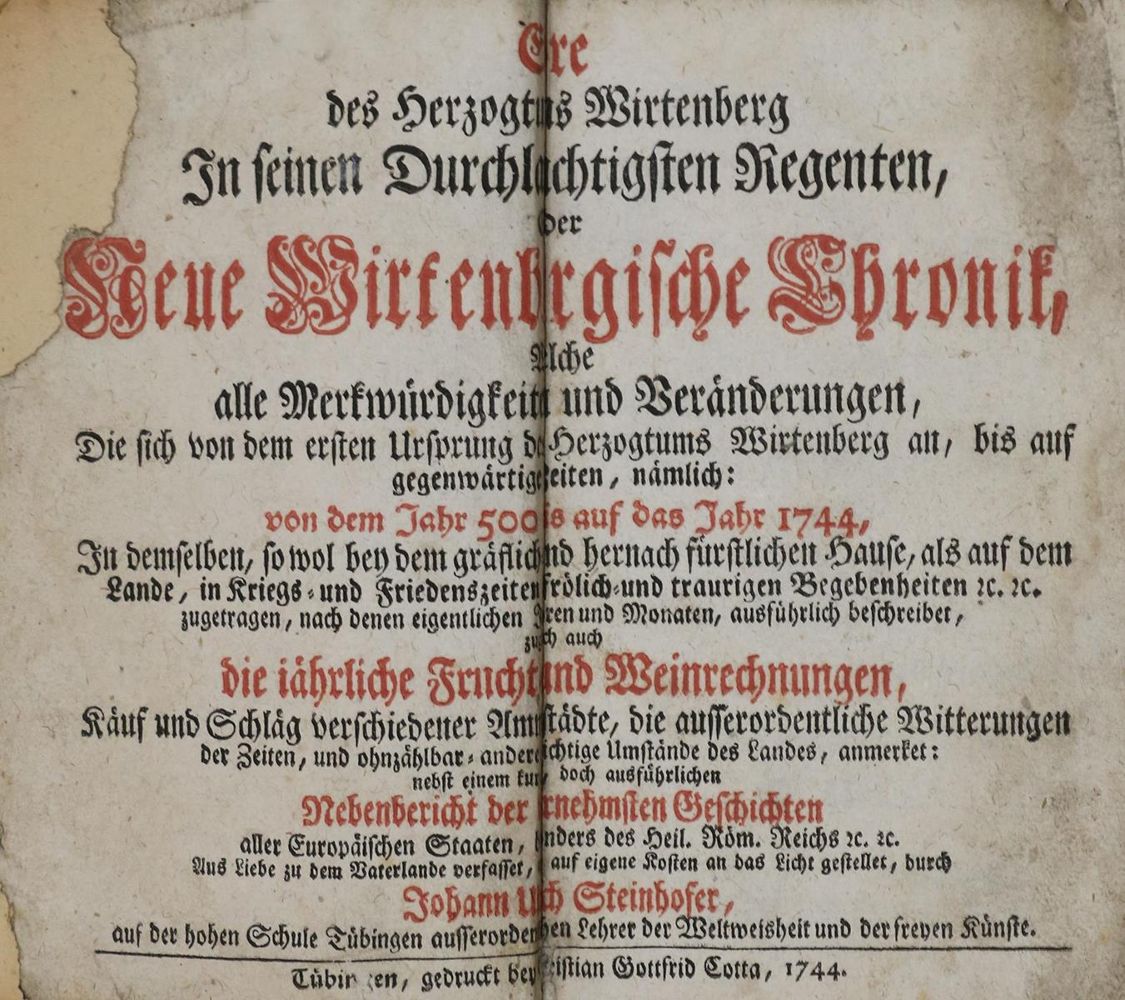 Ere
des Herzogtus Wirtenberg
In seinen Durchlachtigsten Regenten,
der
Neue Wirtenbrgische Chronik,
alle Merkwürdigkeit und Veränderungen,
Die sich von dem ersten Ursprung de Herzogtums Wirtenberg an, bis auf
gegenwärtigeiten, nämlich:
von dem Jahr 500 is auf das Jahr 1744,
In demselben, so wol bey dem gräflichnd hernach fürstlichen Hause, als auf dem
Lande, in Kriegs- und Friedenszeiten frölich- und traurigen Begebenheiten ꝛc. ꝛc.
zugetragen, nach denen eigentlichen ren und Monaten, ausführlich beschreibet,
auch
die iährliche Frucht und Weinrechnungen,
Käuf und Schläg verschiedener Amtstädte, die ausserordentliche Witterungen
der Zeiten, und ohnzählbar-andere ichtige Umstände des Landes, anmerket:
nebst einem kur, doch ausführlichen
Nebenbericht der rnehmsten Geschichten
aller Europäischen Staaten, nders des Heil. Röm. Reichs ꝛc. ꝛc.
Aus Liebe zu dem Vaterlande verfasset, auf eigene Kosten an das Licht gestellet, durch
Johann Uch Steinhofer,
auf der hohen Schule Tübingen ausserordenhen Lehrer der Weltweisheit und der freyen Künste.
Tübingen, gedruckt bey ristian Gottfrid Cotta, 1744.